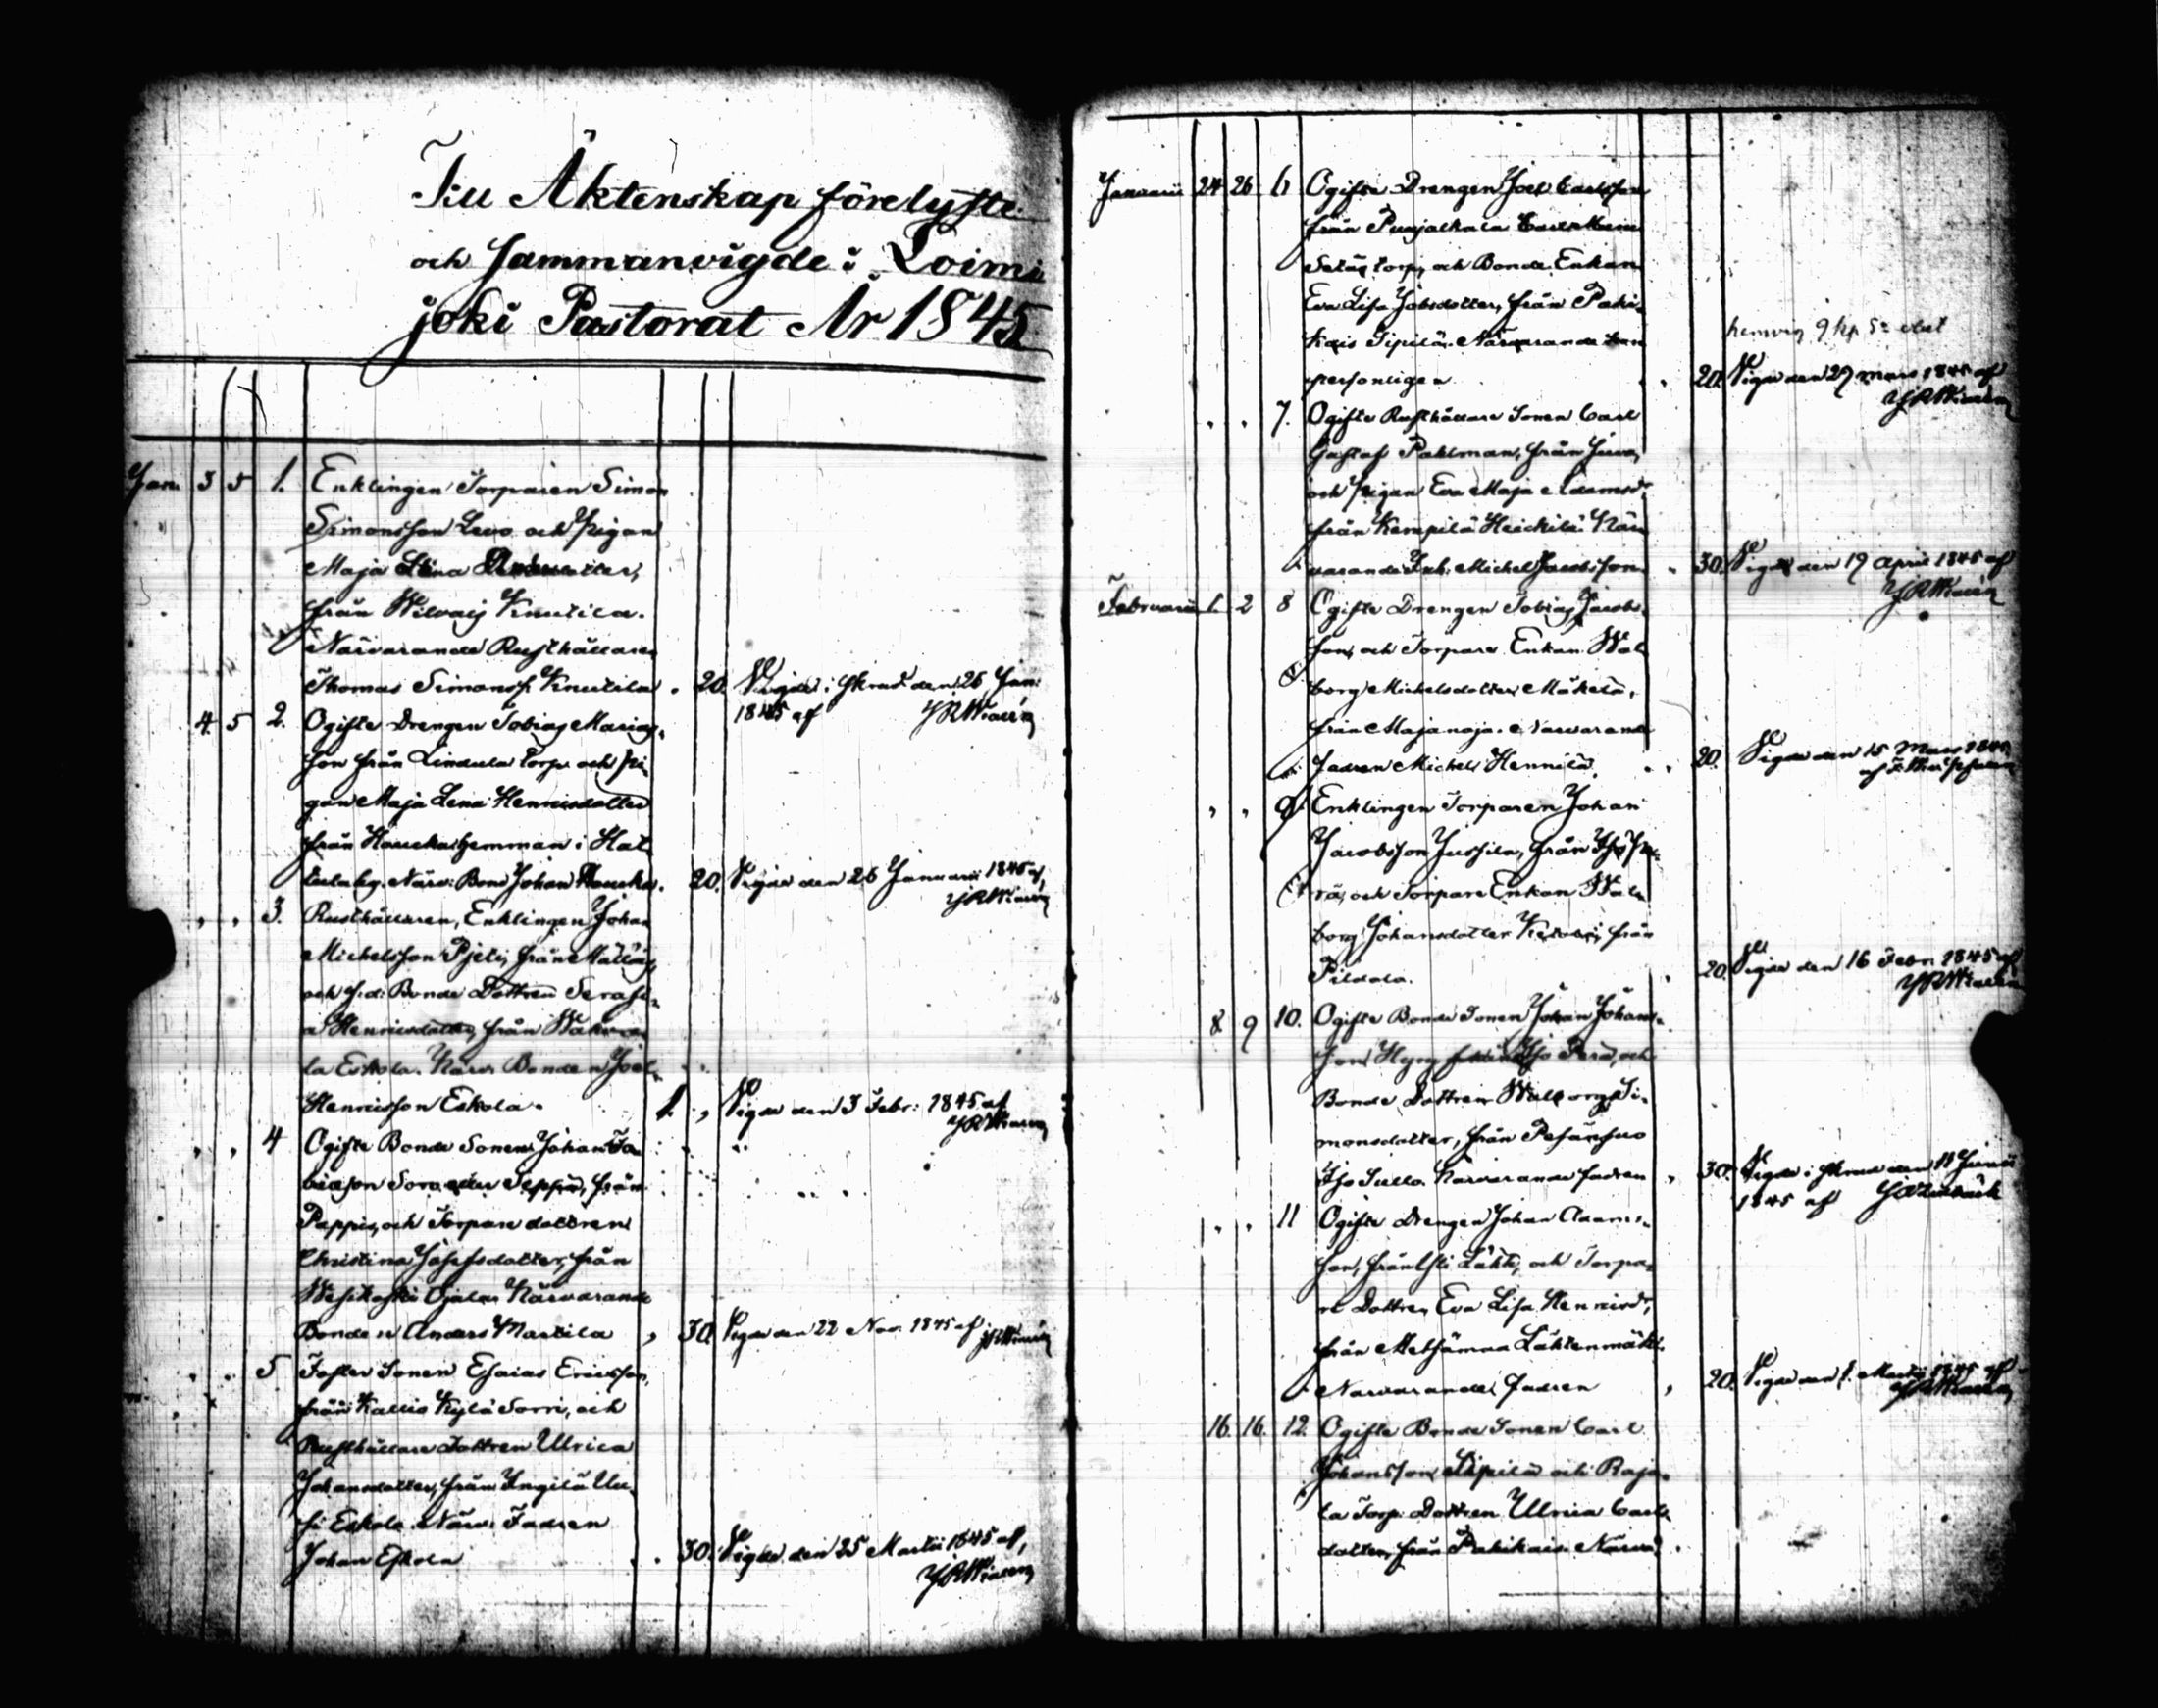 Till Äktenskap förelyste
och Sammanvigde i Loimi
joki Pastorat År 1845
Jan. 3 5 1. Enklingen Torparen Simon
Simonsson Levo och Pigan
Maja Lena
från Wilvais Knutila.
Närvarande Rusthållaren
Thomas Simonss. Knutila . 20. Vigde i den 26 Jan:
1845 af
4 5 2. Ogifte Drengen Tobias Marias
son från Lindula torp och Pi
gan Maja Lena Henricsdotter
från Haucka hemman i Hat
tula by. Närv: Bond Johan Haucka. 20. Vigde den 26 Januarii 1845 af,
" " 3. Rusthållaren, Enklingen Johan
Michelsson Pjeti, från Mällöis
och f.d. Bonde Dottren Serafi-
a Henricsdotter, från Wahva
la Eskola. Närv. Bonden Joel
Henricsson Eskola. 1. , Vigde den 3 Febr: 1845 af
" " 4 Ogifte Bonde Sonen Johan To
biasson Sorri eller Seppä, från
Pappis, och Torpare dottren
Christina Josefsdotter, från
Wesikoski Ojala. Närvarande
Bonden Anders Martila , 30. Vigde den 22 Nov. 1845 af
" " 5 Foster Sonen Esaias Ericsson,
från Kallio Kylä Sorri, och
Rusthållare Dottren Ulrica
Johansdotter, från Ingilä Uu
si Eskola. Närv. Fadren
Johan Eskola . . 30. Vigde den 25 Martii 1845 af,
Januarii 24 26 6 Ogifte Drengen Joel Carlsson
från Punjalkala
torp, och Bonde Enkan
Eva Lisa Jobsdotter, från Pahi-
kais Sipilä. Närvarande
personligen . . 20. Vigde den 29 Mars 1845 af
" " 7. Ogifte Rusthållare Sonen Carl
Gustaf Pahlman, från Juva,
och Pigan Eva Maja Adamsd:
från Kempilä Heickilä. När
varande Inh. Michel Jacobsson. . 30. Vigde den 19 April 1845 af
Februarii 1. 2 8 Ogifte Drengen Tobias Jacobs
son, och Torpare Enkan Wal
borg Michelsdotter Mäkelä,
från Majanoja. Närvarande
Fadren Michel Hennilä. . . 20. Vigde den 15 Mars 1845
" " 9. Enklingen Torparen Johan
Jacobsson Jussila, från Iso Pe
rä, och Torpare Enkan Wal
borg Johansdotter från
Pildola. . 20. Vigde den 16 Febr. 1845 af
8 9 10. Ogifte Bonde Sonen Johan Johans-
son Iso Perä, och
Bonde Dottren Walborg Si-
monsdotter, från Pesänsuo
Iso Närvarande Fadren , 30. Vigde i den 11 Junii
1845 af
" " 11 Ogifte Drengen Johan Adams-
son, från Lähti, och Torpa-
re Dottren Eva Lisa Henricsd:
från Metsämaa Lähtenmäki.
Närvarande Fadren , 20. Vigde den 1. Martii 1845 af
16. 16. 12. Ogifte Bonde Sonen Carl
Johansson Sipilä och Raja-
la Torp. Dottren Ulrica Carls
dotter, från Pahikais. Närv: